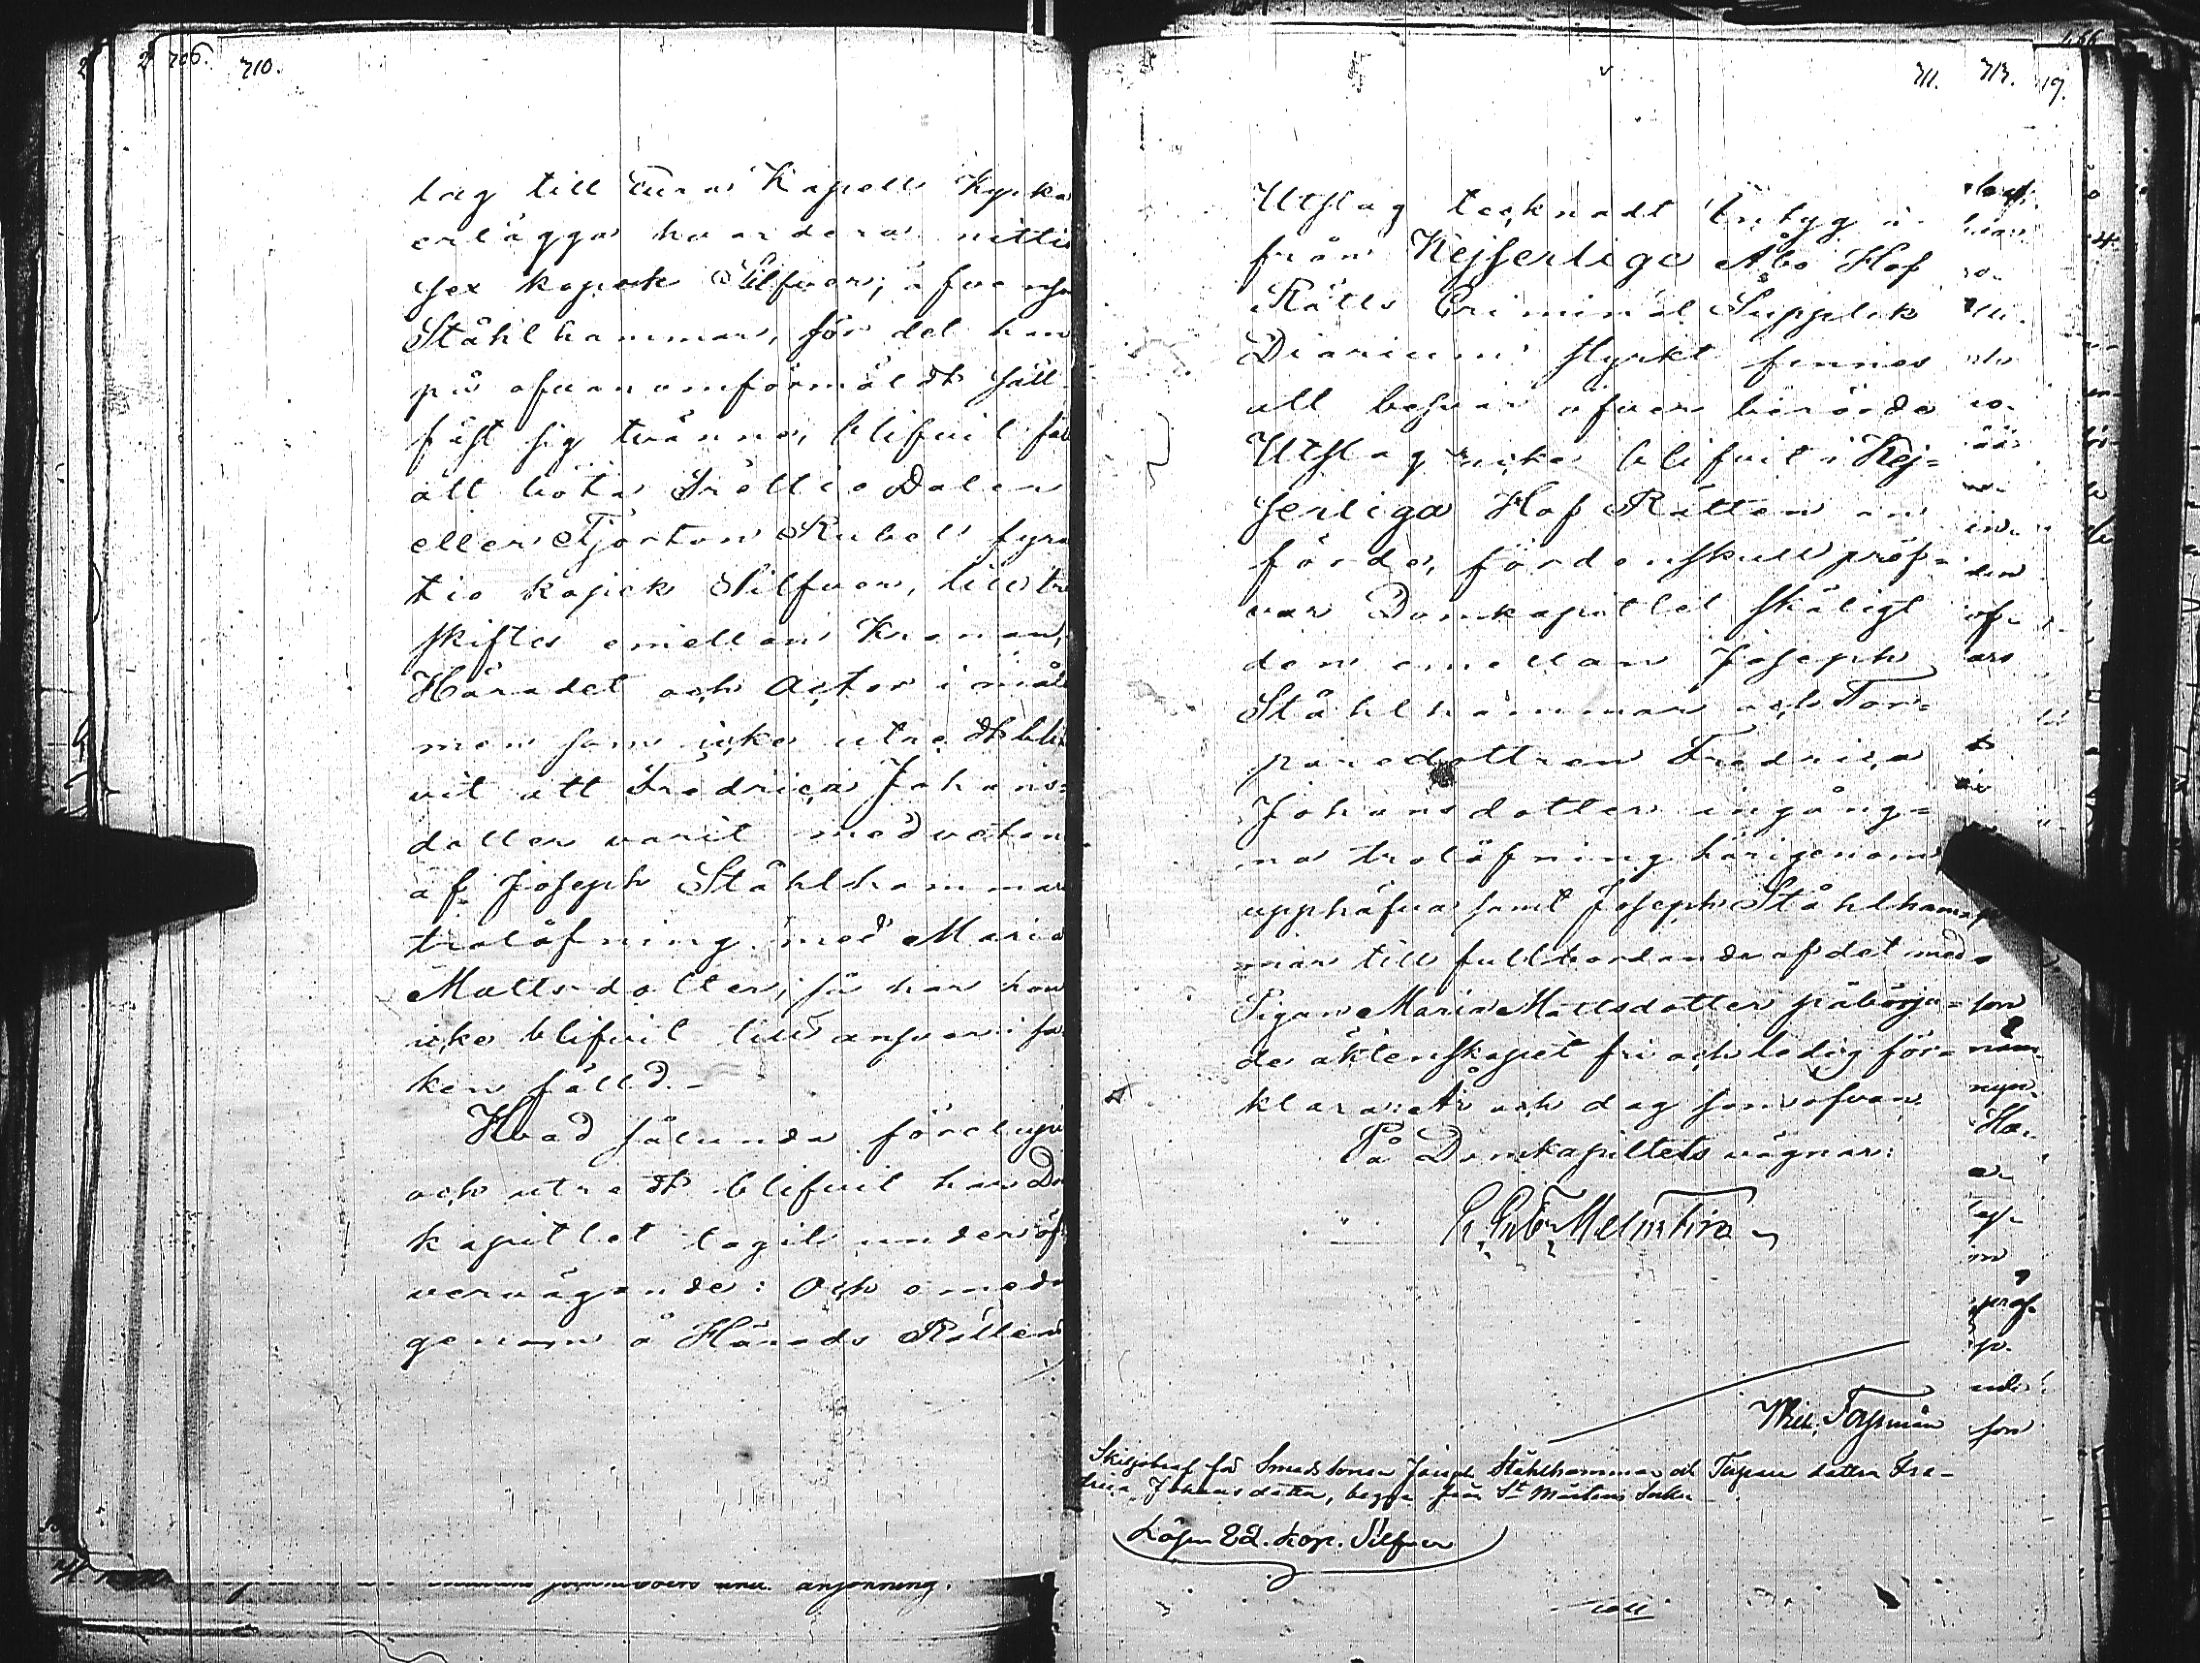 710.
lag till Aura Kapell Kyrka
erlägga hvardera nittio
sex kopek Silfver; äfvensom
Ståhlhammar, för det han
på ofvanomförmäldt sätt
fäst sig tvänne, blifvit fäld
att böta Trettio Daler
eller Fjorton Rubel fyra
tio kopek Silfver, till tre
skiftes emellan Kronan,
Häradet och Actor i målet
men som icke utredt bli
vit att Fredrica Johans=
dotter varit medveten
af Joseph Ståhlhammars
trolofning med Maria
Mattsdotter, så har hon
icke blifvit till ansvar i sa
ken fälld.-
Hvad sålunda förelupit
och utredt blifvit har Dom
kapitlet tagit under öf
vervägande: Och emedan
genom å Härads Rättens
711. 713. 19.
Utslag tecknadt Intyg
från Kejserliga Åbo Hof
Rätts Criminal Supplik
Diarium styrkt finnes
att besvär öfver berörde
Utslag icke blifvit i Kej=
serliga Hof Rätten an
förde, fördenskull pröf=
var Domkapitlet skäligt
den emellan Joseph
Ståhlhammar och Tor=
paredottren Fredrica
Johansdotter ingång=
na trolofning härigenom
upphäfva samt Joseph Ståhlham=
mar till fullbordande af det med
Pigan Maria Mattsdotter påbörja=
de äktenskapet fri och ledig för=
klara: År och dag som ofvan.
På Domkapitlets vägnar:
Skiljobref för Smedssonen Joseph Ståhlhammar och Torpare dottren Fre-
drica Johansdotter, begge från St Mårtens Socken
Lösen 82. kop. Silfver